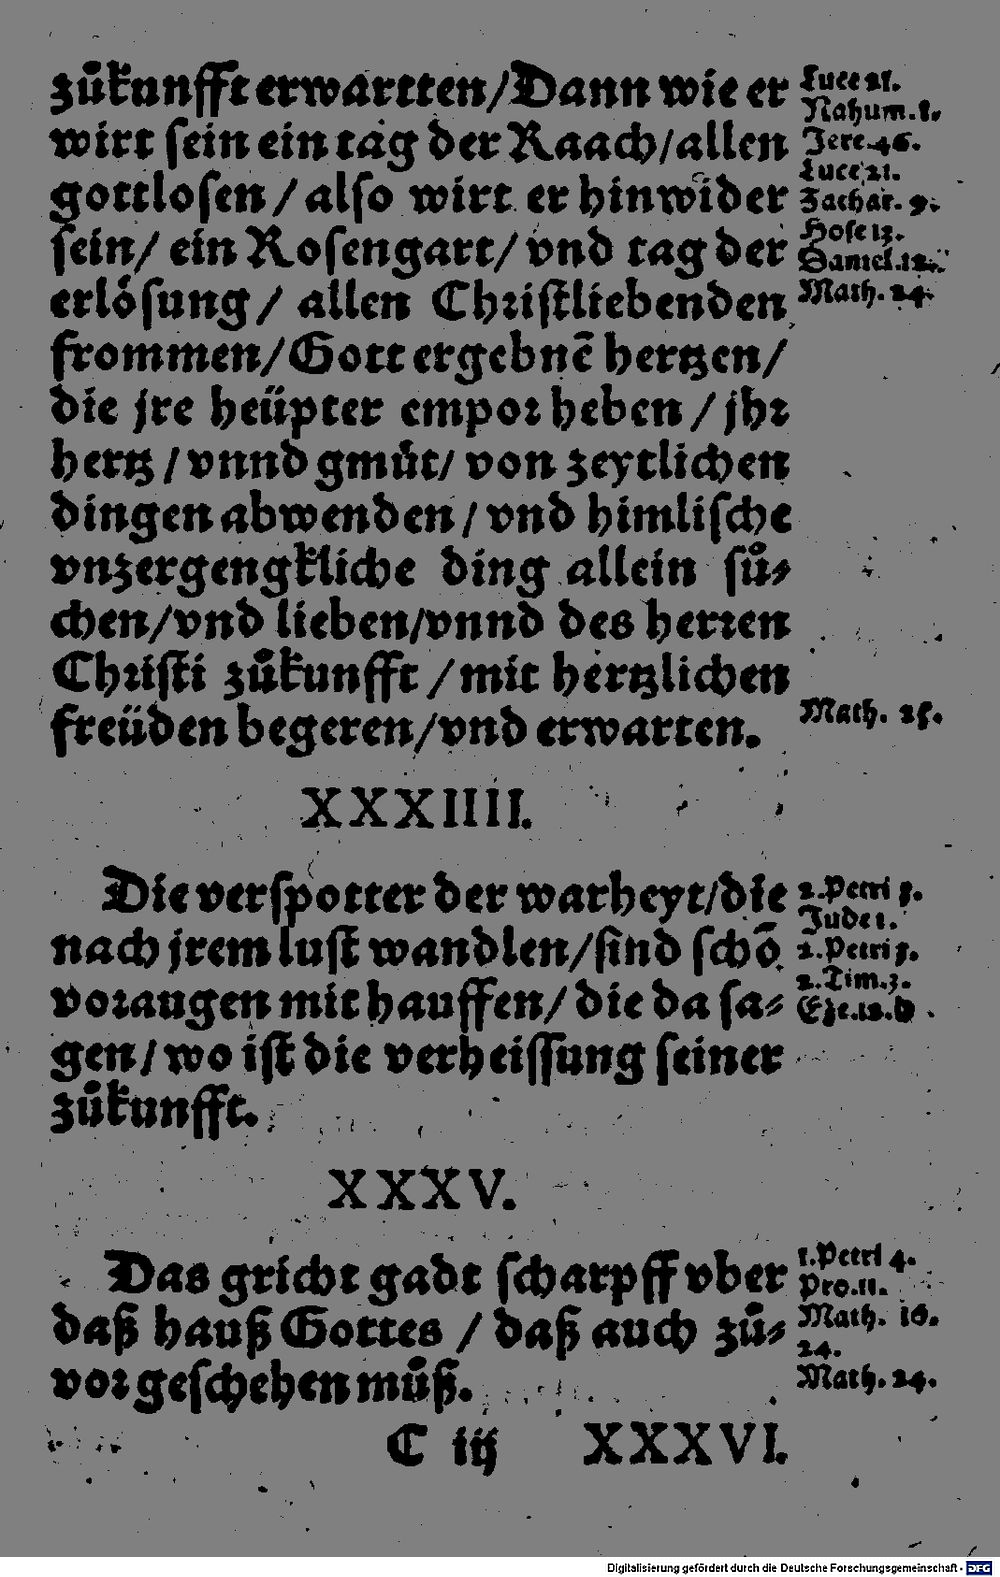 zůkunfft erwartten/Dann wie er
wirt sein ein tag der Raach/allen
gottlosen / also wirt er hinwider
sein/ ein Rosengart/ vnd tag der
erlősung / allen Christliebenden
frommen/Gott ergebnē hertzen/
die jre heüpter empor heben / jhr
hertz / vnnd gmůt/ von zeytlichen
dingen abwenden / vnd himlische
vnzergengkliche ding allein sů-
chen/vnd lieben/vnnd des herren
Christi zůkunfft / mit hertzlichen
freüden begeren/vnd erwarten.
Luce 21.
Nahum.1.
Jere.46.
Luce 21.
Zachar. 9.
Hose 13.
Daniel.12.
Math. 24.
Math. 25.
XXXIIII.
Die verspotter der warheyt/die
nach jrem lust wandlen/sind schō
voraugen mit hauffen/ die da sa-
gen/ wo ist die verheissung seiner
zůkunfft.
2.Petri 3.
Jude 1.
2.Petri 3.
2.Tim.3.
Eze.12.
XXXV.
Das gricht gadt scharpff vber
daß hauß Gottes / daß auch zů-
vor geschehen můß.
1.Petri 4.
Pro.11.
Math. 16.
24.
Math. 24.
C iij XXXVI.
Digitalisierung gefördert durch die Deutsche Forschungsgemeinschaft - DFG